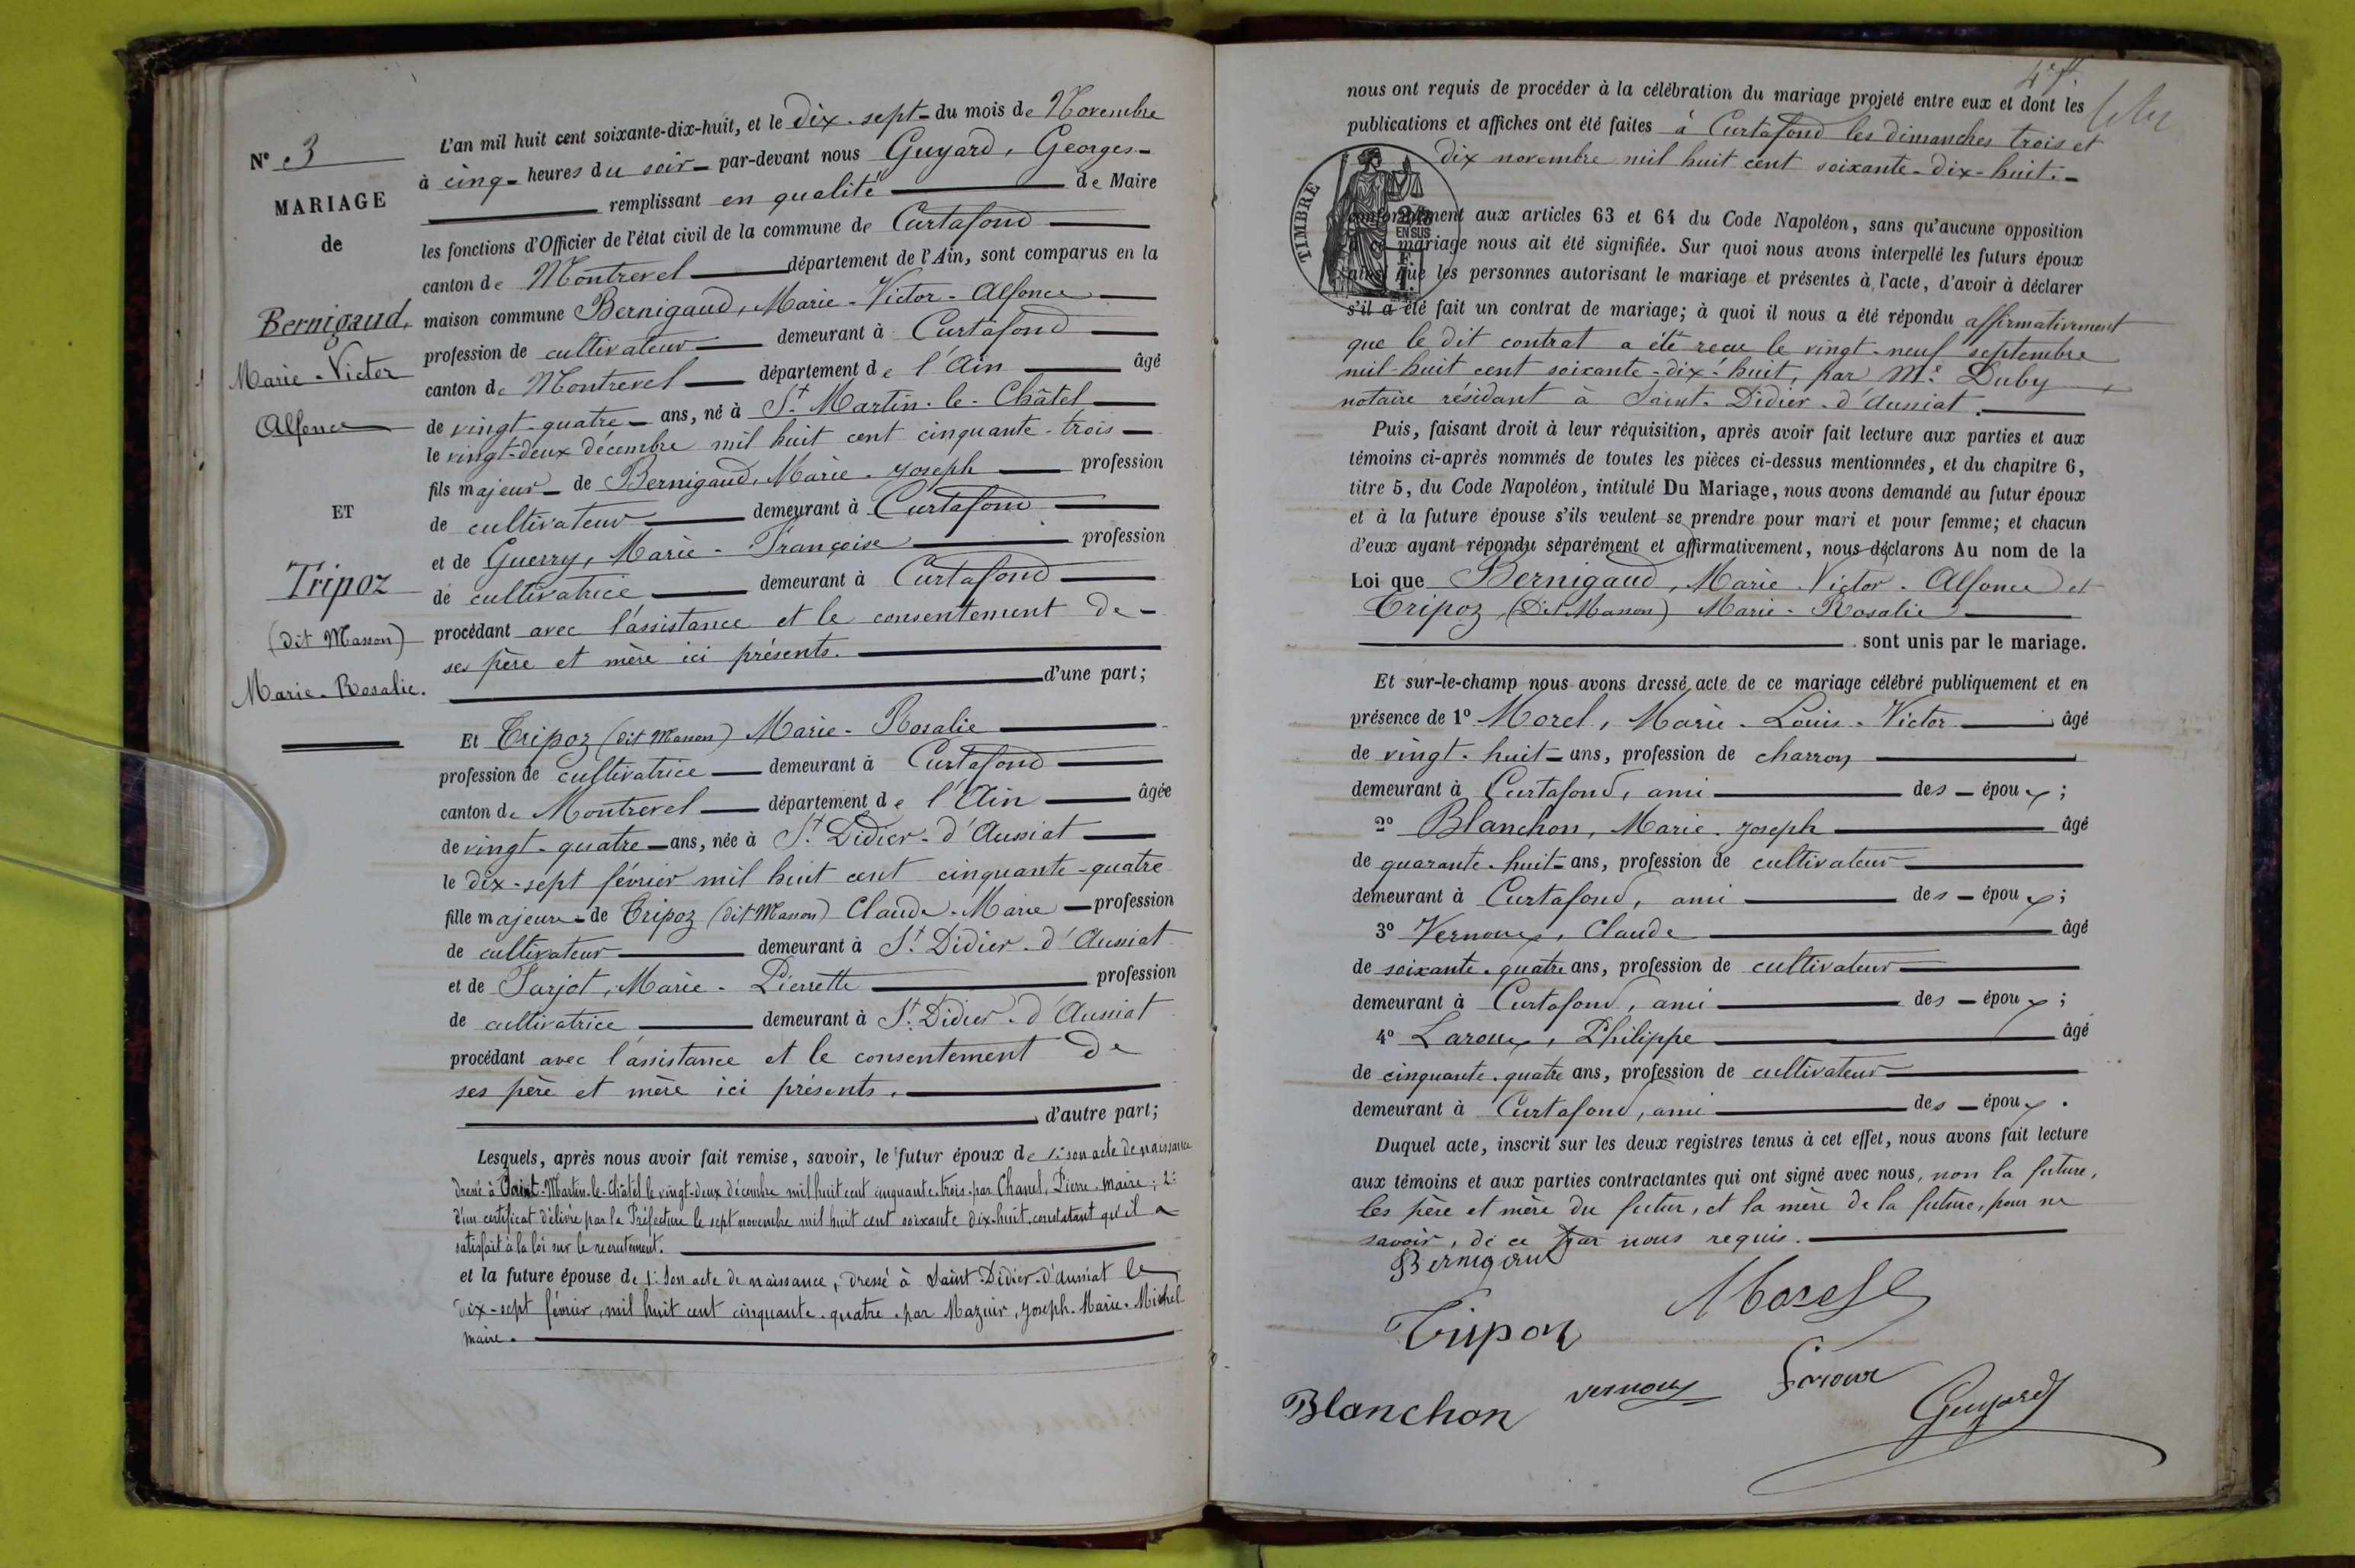 N° 3
MARIAGE
de
Bernigaud,
Marie-Victor
Alfonce
ET
Tripoz
(dit Masson)
Marie-Rosalie.
L'an mil huit cent soixante-dix-huit, et le dix-sept du mois de Novembre
à cinq heures du soir par-devant nous Guyard, Georges
remplissant en qualité de Maire
les fonctions d'Officier de l'état civil de la commune de Curtafond
canton de Montrevel département de l'Ain, sont comparus en la
maison commune Bernigaud, Marie-Victor-Alfonce
profession de cultivateur demeurant à Curtafond
canton de Montrevel département de l'Ain âgé
de vingt-quatre ans, né à St Martin-le-Châtel
le vingt-deux décembre mil huit cent cinquante-trois
fils majeur de Bernigaud, Marie-Joseph profession
de cultivateur demeurant à Curtafond
et de Guerry, Marie-Françoise profession
de cultivatrice demeurant à Curtafond
procédant avec l'assistance et le consentement de
ses père et mère ici présents.
d'une part;
Et Tripoz (dit Masson) Marie-Rosalie
profession de cultivatrice demeurant à Curtafond
canton de Montrevel département de l'Ain âgée
de vingt-quatre ans, née à St Didier-d'Aussiat
le dix-sept février mil huit cent cinquante-quatre
fille majeure de Tripoz (dit Masson) Claude-Marie profession
de cultivateur demeurant à St Didier-d'Aussiat
et de Sarjot, Marie-Pierrette profession
de cultivatrice demeurant à St Didier-d'Aussiat
procédant avec l'assistance et le consentement de
ses père et mère ici présents.
d'autre part;
Lesquels, après nous avoir fait remise, savoir, le futur époux de 1° son acte de naissance
dressé à Saint-Martin-le-Châtel le vingt-deux décembre mil huit cent cinquante-trois par Chanel, Pierre maire; 2°
d'un certificat délivré par la Préfecture le sept novembre mil huit cent soixante dix-huit, constatant qu'il a
satisfait à la loi sur le recrutement.
et la future épouse de 1° son acte de naissance, dressé à Saint-Didier-d'aussiat le
dix-sept février, mil huit cent cinquante-quatre par Mazuir, Joseph-Marie-Michel
maire.
nous ont requis de procéder à la célébration du mariage projeté entre eux et dont les
publications et affiches ont été faites à Curtafond les dimanches trois et
dix novembre mil huit cent soixante-dix-huit.
TIMBRE
EN SUS
conformément aux articles 63 et 64 du Code Napoléon, sans qu'aucune opposition
à ce mariage nous ait été signifiée. Sur quoi nous avons interpellé les futurs époux
ainsi que les personnes autorisant le mariage et présentes à l'acte, d'avoir à déclarer
s'il a été fait un contrat de mariage; à quoi il nous a été répondu affirmativement
que le dit contrat a été reçu le vingt-neuf septembre
mil-huit cent soixante-dix-huit, par Me Duby
notaire résidant à Saint-Didier-d'Aussiat.
Puis, faisant droit à leur réquisition, après avoir fait lecture aux parties et aux
témoins ci-après nommés de toutes les pièces ci-dessus mentionnées, et du chapitre 6,
titre 5, du Code Napoléon, intitulé Du Mariage, nous avons demandé au futur époux
et à la future épouse s'ils veulent se prendre pour mari et pour femme; et chacun
d'eux ayant répondu séparément et affirmativement, nous déclarons Au nom de la
Loi que Bernigaud, Marie-Victor-Alfonce et
Tripoz (Dit Masson) Marie-Rosalie
sont unis par le mariage.
Et sur-le-champ nous avons dressé acte de ce mariage célébré publiquement et en
présence de 1° Morel, Marie-Louis-Victor âgé
de vingt-huit ans, profession de charron
demeurant à Curtafond, ami des époux;
2° Blanchon, Marie-Joseph âgé
de quarante-huit ans, profession de cultivateur
demeurant à Curtafond, ami des époux;
3° Vernoux, Claude âgé
de soixante-quatre ans, profession de cultivateur
demeurant à Curtafond, ami des époux;
4° Laroux, Philippe âgé
de cinquante-quatre ans, profession de cultivateur
demeurant à Curtafond, ami des époux.
Duquel acte, inscrit sur les deux registres tenus à cet effet, nous avons fait lecture
aux témoins et aux parties contractantes qui ont signé avec nous, non la future,
les père et mère du futur, et la mère de la future, pour ne
savoir, de ce par nous requis.
Bernigaud
Morel
Tripoz
Blanchon
vernoux
Guyard